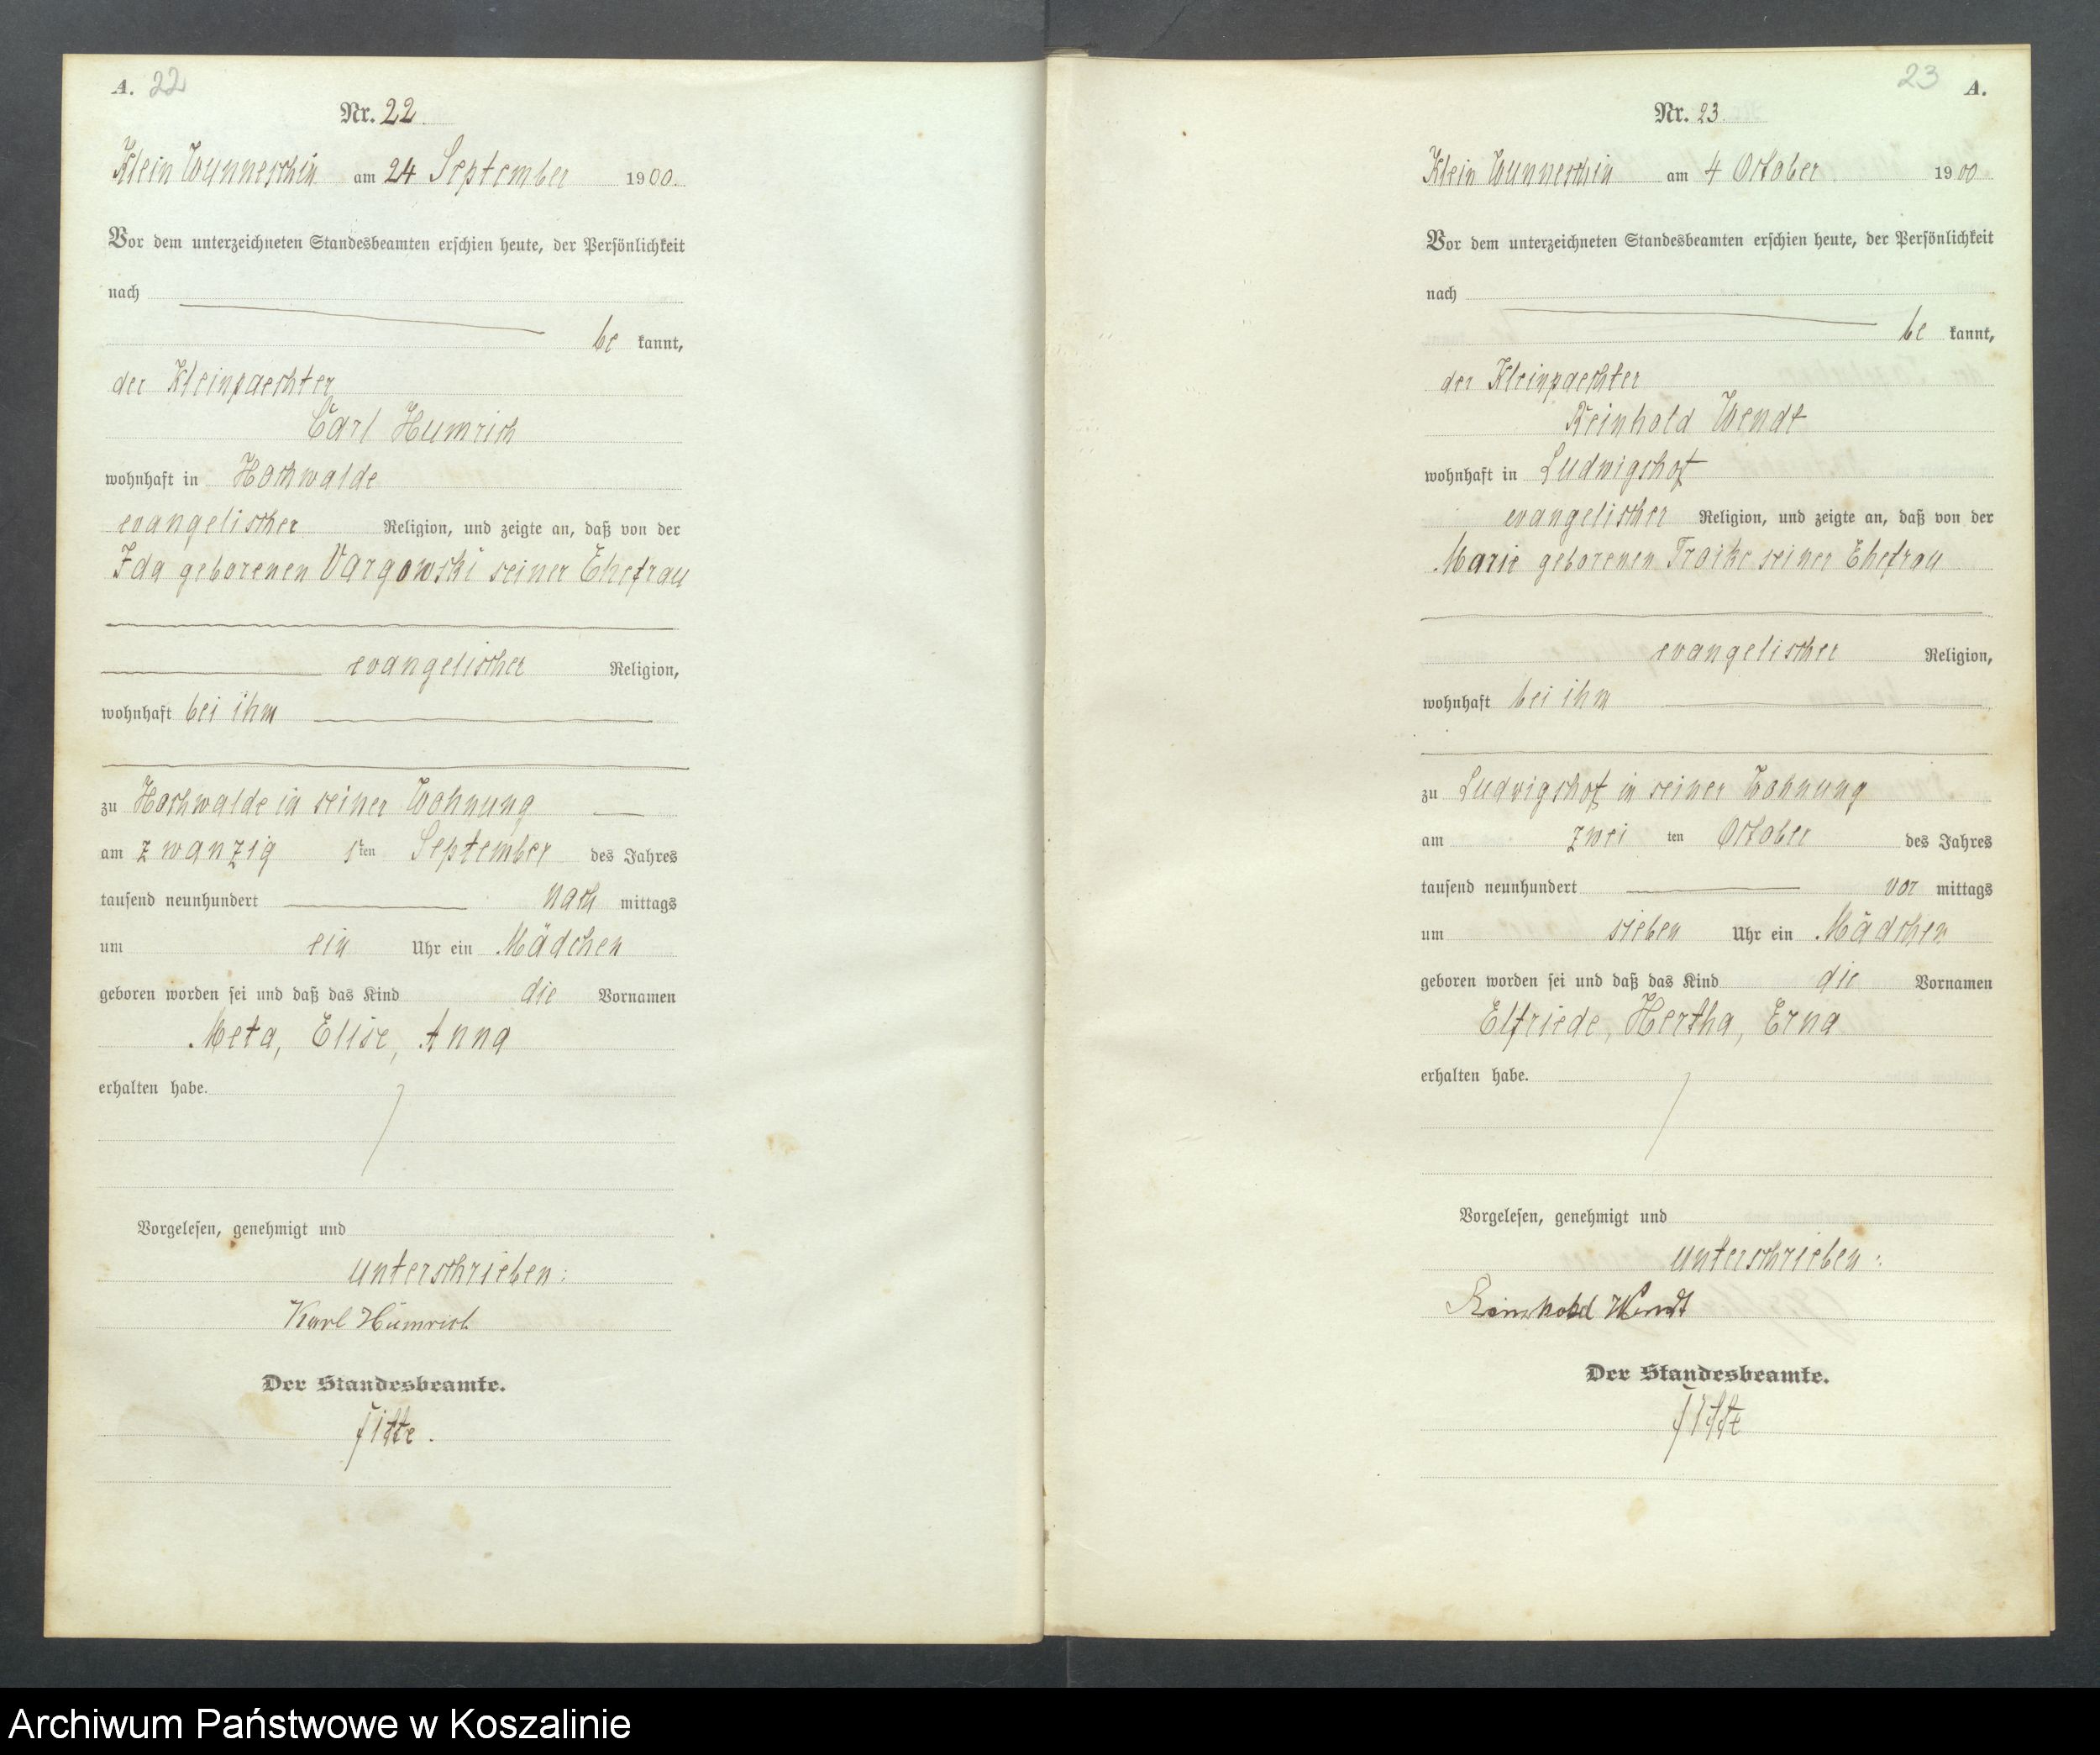 A. 22
Nr. 22.
Klein Wunneschin am 24 September 1900.
Vor dem unterzeichneten Standesbeamten erschien heute, der Persönlichkeit
nach
be kannt,
der Kleinpaechter
Carl Humrich
wohnhaft in Hochwalde
evangelischer Religion, und zeigte an, daß von der
Ida geborenen Vargowski seiner Ehefrau
evangelischer Religion,
wohnhaft bei ihm
zu Hochwalde in seiner Wohnung
am zwanzig sten September des Jahres
tausend neunhundert nach mittags
um ein Uhr ein Mädchen
geboren worden sei und daß das Kind die Vornamen
Meta, Elise, Anna
erhalten habe.
Vorgelesen, genehmigt und
unterschrieben:
Karl Humrich
Der Standesbeamte.
23 A.
Nr. 23.
Klein Wunneschin am 4 October 1900
Vor dem unterzeichneten Standesbeamten erschien heute, der Persönlichkeit
nach
be kannt,
der Kleinpaechter
Reinhold Wendt
wohnhaft in Ludwigshof
evangelischer Religion, und zeigte an, daß von der
Marie geborenen seiner Ehefrau
evangelischer Religion,
wohnhaft bei ihm
zu Ludwigshof in seiner Wohnung
am zwei ten October des Jahres
tausend neunhundert vor mittags
um sieben Uhr ein Mädchen
geboren worden sei und daß das Kind die Vornamen
Elfriede, Hertha, Erna
erhalten habe.
Vorgelesen, genehmigt und
unterschrieben:
Reinhold Wendt
Der Standesbeamte.
Archiwum Państwowe w Koszalinie